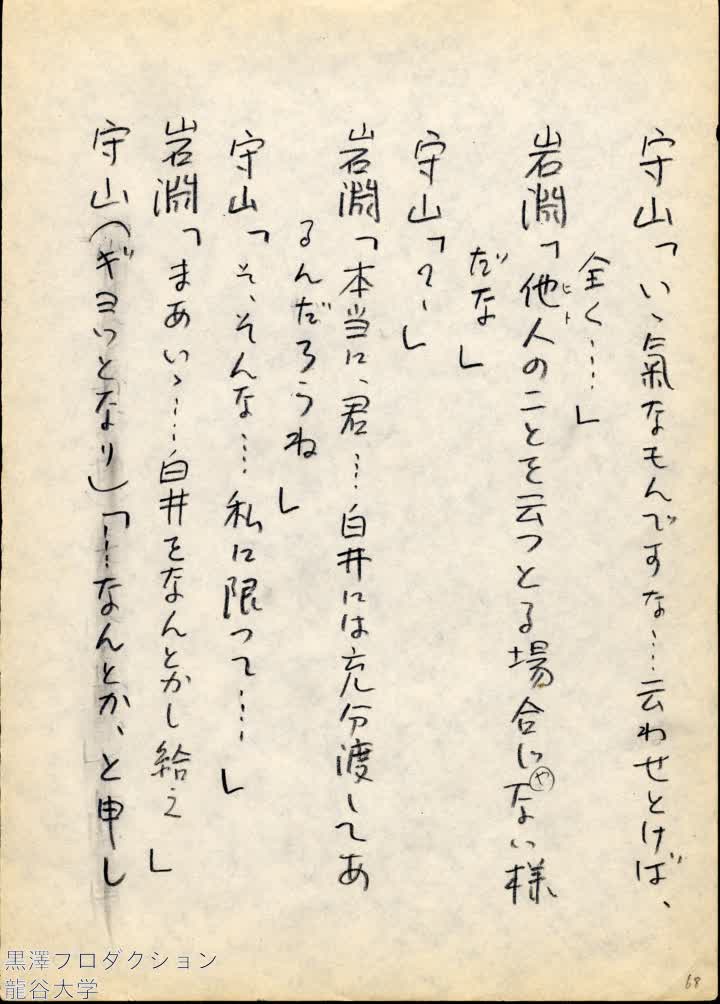 守山「いゝ氣なもんですな……云わせとけば、
全く……」
岩淵「他人のことを云つとる場合じやない様
ヒト
だな」
守山「？……」
岩淵「本当に、君……白井には充分渡してあ
るんだろうね」
守山「そ、そんな……私に限つて……」
岩淵「まあいゝ……白井をなんとかし給え」
守山（ギヨツとなり）「……なんとか、と申し
68
黒澤プロダクション
龍谷大学